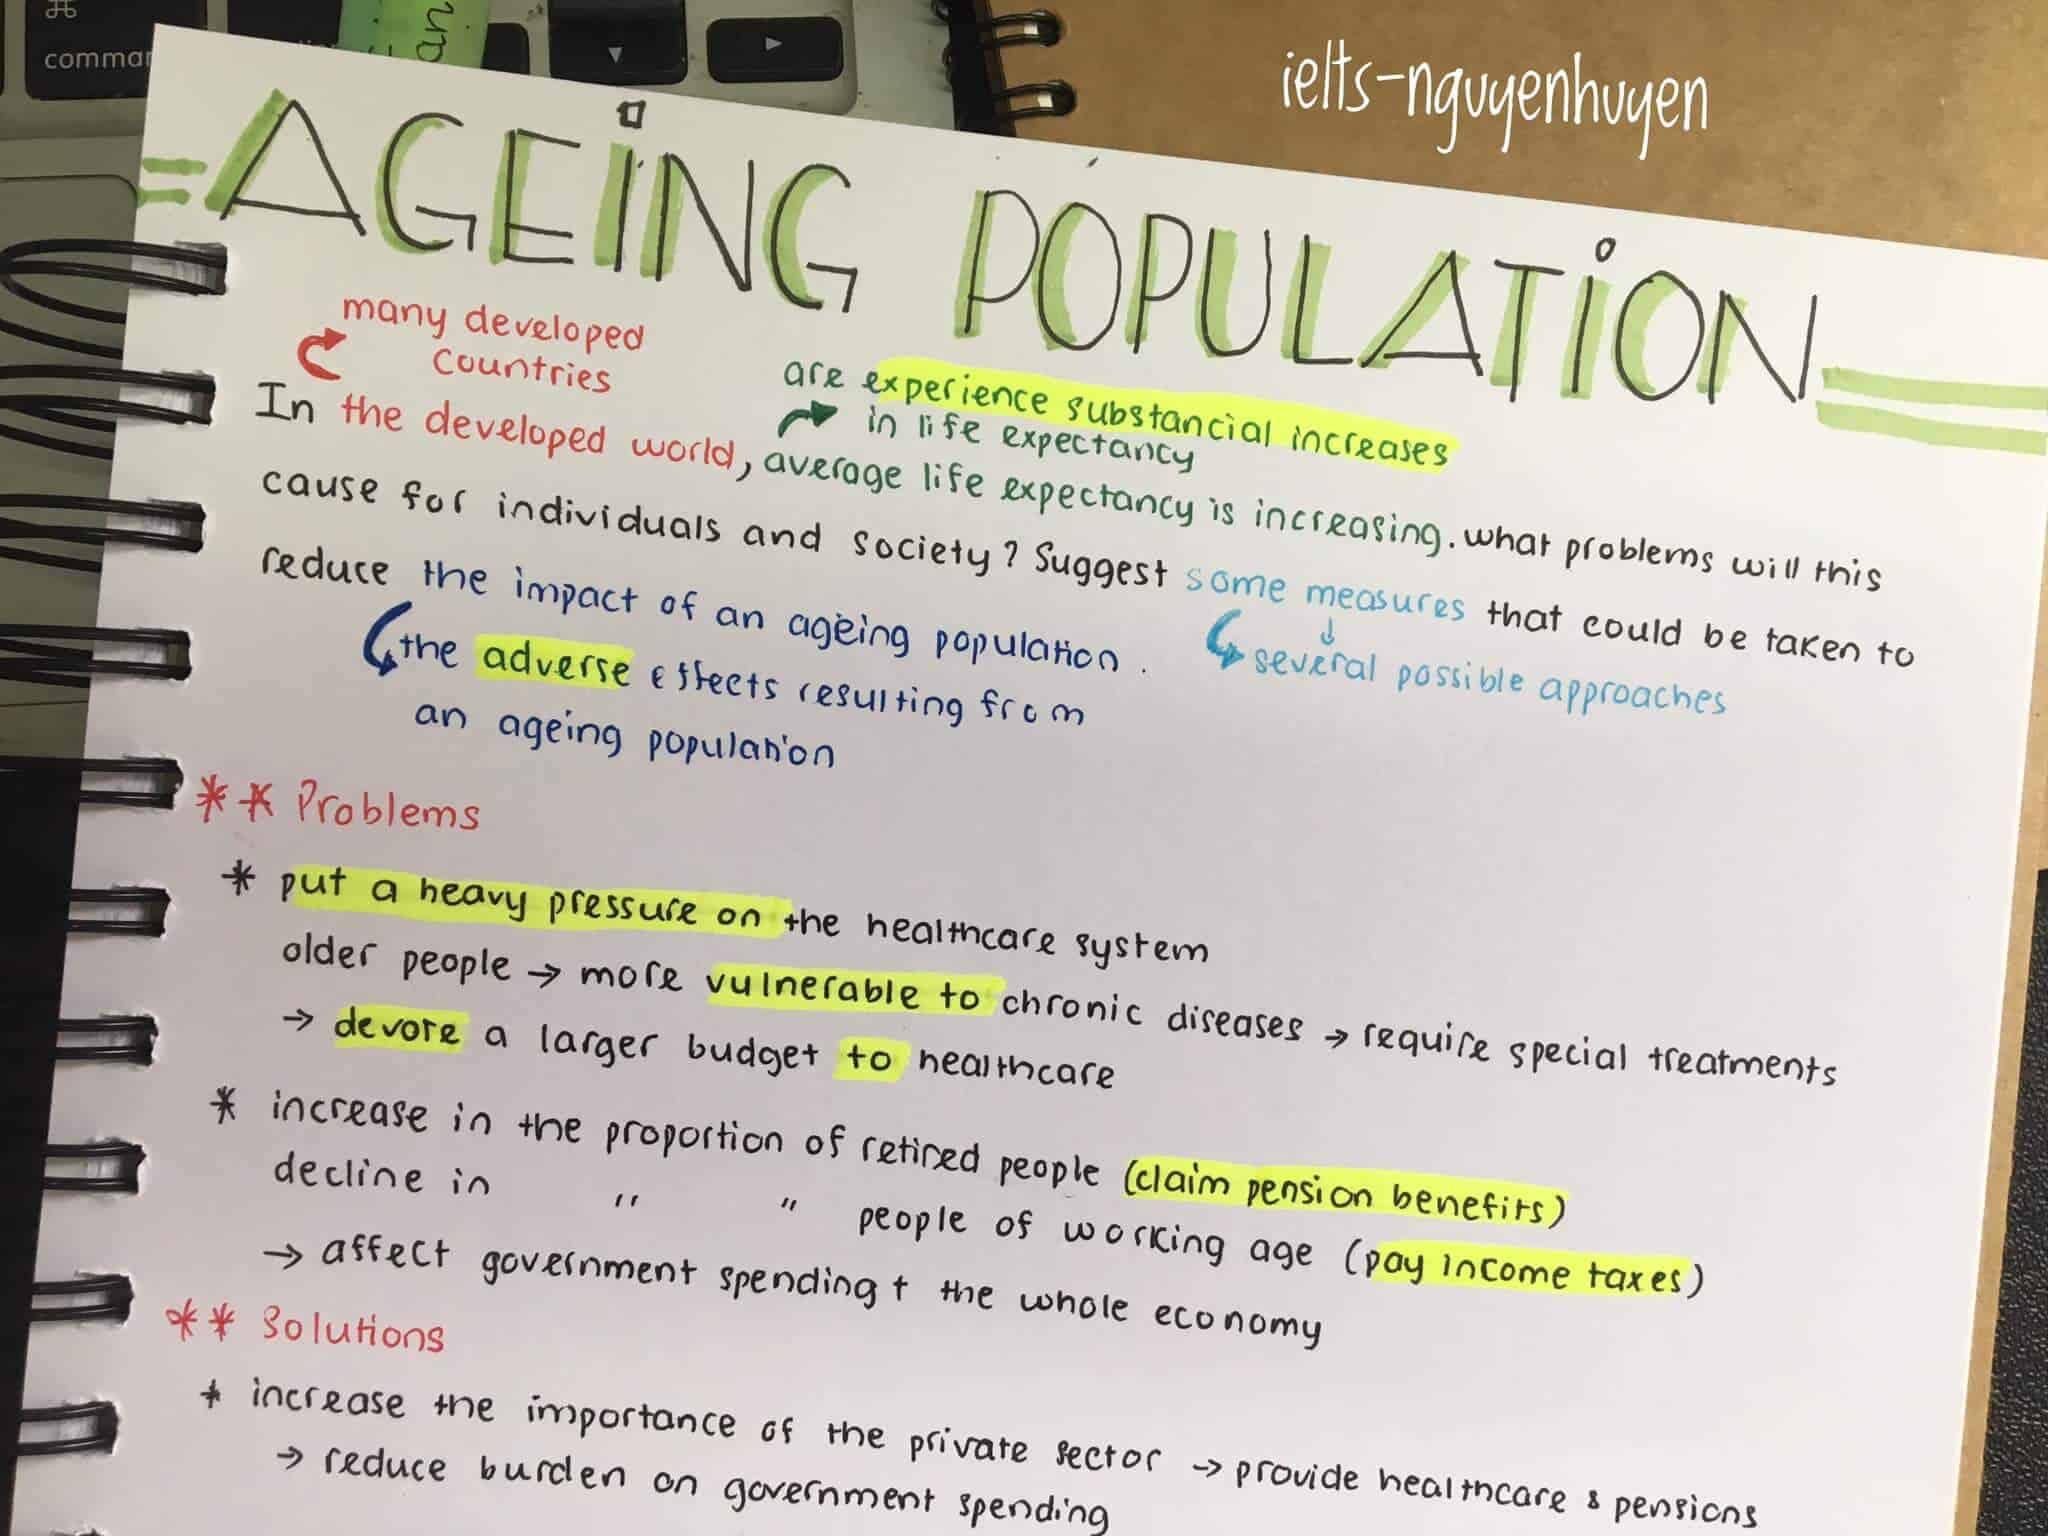 comma
an
ielts-nguyenhuyen
=AGEING POPULATION=
many developed
countries
are experience substancial increases
in life expectancy
In the developed world, average life expectancy is increasing. what problems will this
cause for individuals and society? Suggest some measures that could be taken to
reduce the impact of an ageing population.
several possible approaches
the adverse effects resulting from
an ageing population
** Problems
* put a heavy pressure on the healthcare system
older people → more vulnerable to chronic diseases → require special treatments
→ devote a larger budget to healthcare
* increase in the proportion of retired people (claim pension benefits)
decline in " " people of working age (pay income taxes)
→ affect government spending + the whole economy
** Solutions
* increase the importance of the private sector → provide healthcare & pensions
→ reduce burden on government spending